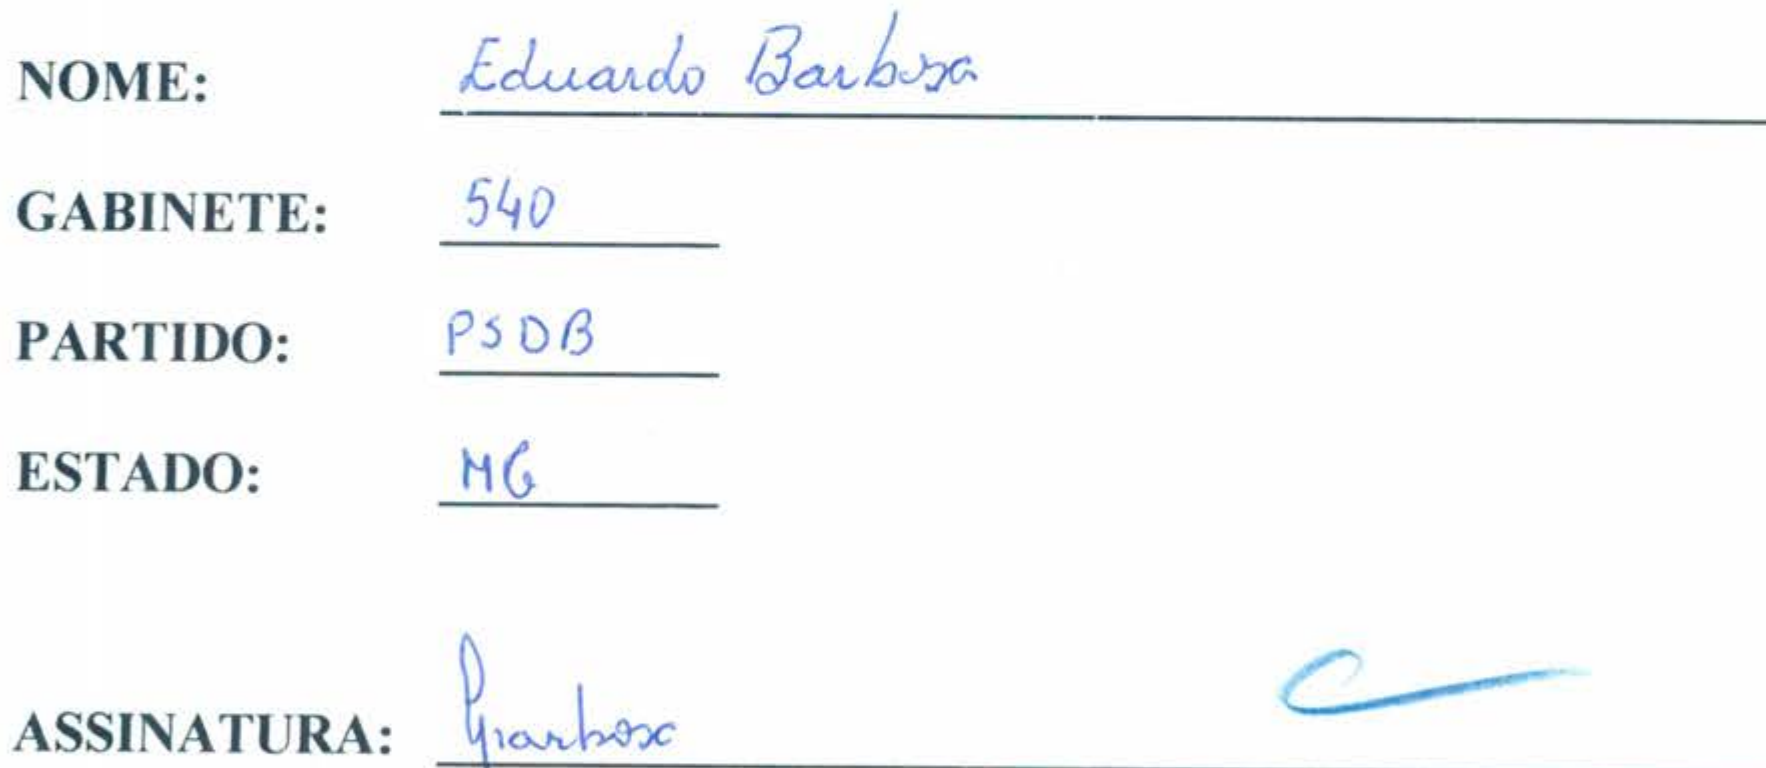 NOME: Eduardo Barbosa
GABINETE: 540
PARTIDO: PSDB
ESTADO: MG
ASSINATURA: